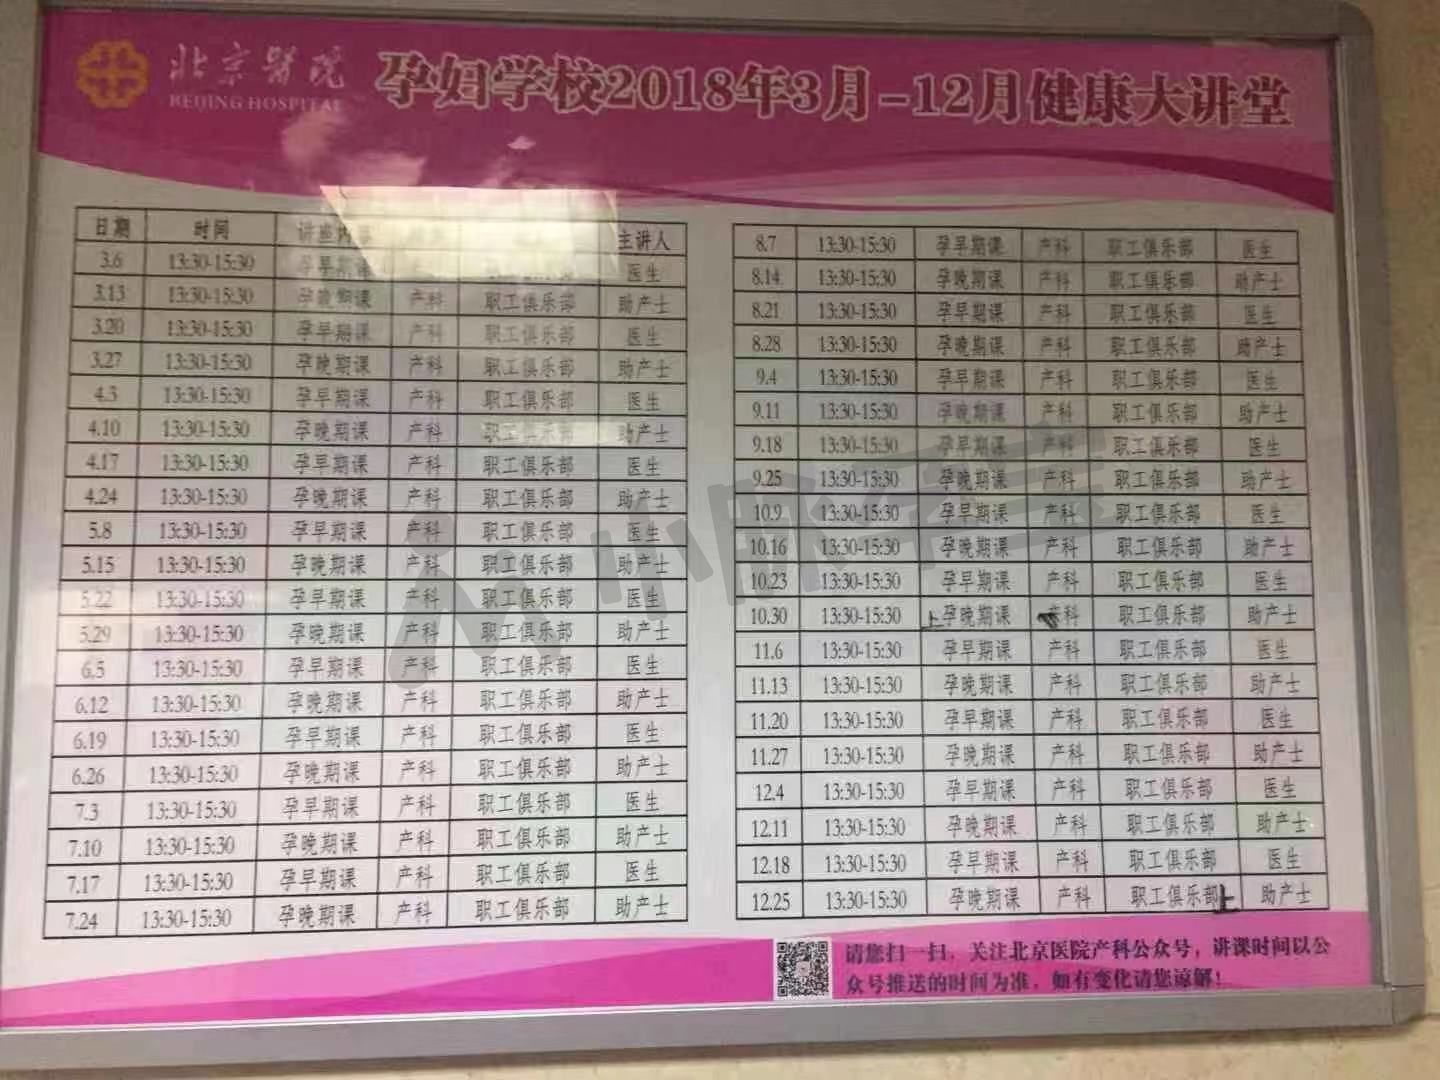 北京醫院
BEIJING HOSPITAL
孕妇学校2018年3月-12月健康大讲堂
日期 时间 讲座内容 主讲人
3.6 13:30-15:30 孕早期课 医生
3.13 13:30-15:30 孕晚期课 产科 职工俱乐部 助产士
3.20 13:30-15:30 孕早期课 产科 职工俱乐部 医生
3.27 13:30-15:30 孕晚期课 产科 职工俱乐部 助产士
4.3 13:30-15:30 孕早期课 产科 职工俱乐部 医生
4.10 13:30-15:30 孕晚期课 产科 职工俱乐部 助产士
4.17 13:30-15:30 孕早期课 产科 职工俱乐部 医生
4.24 13:30-15:30 孕晚期课 产科 职工俱乐部 助产士
5.8 13:30-15:30 孕早期课 产科 职工俱乐部 医生
5.15 13:30-15:30 孕晚期课 产科 职工俱乐部 助产士
5.22 13:30-15:30 孕早期课 产科 职工俱乐部 医生
5.29 13:30-15:30 孕晚期课 产科 职工俱乐部 助产士
6.5 13:30-15:30 孕早期课 产科 职工俱乐部 医生
6.12 13:30-15:30 孕晚期课 产科 职工俱乐部 助产士
6.19 13:30-15:30 孕早期课 产科 职工俱乐部 医生
6.26 13:30-15:30 孕晚期课 产科 职工俱乐部 助产士
7.3 13:30-15:30 孕早期课 产科 职工俱乐部 医生
7.10 13:30-15:30 孕晚期课 产科 职工俱乐部 助产士
7.17 13:30-15:30 孕早期课 产科 职工俱乐部 医生
7.24 13:30-15:30 孕晚期课 产科 职工俱乐部 助产士
8.7 13:30-15:30 孕早期课 产科 职工俱乐部 医生
8.14 13:30-15:30 孕晚期课 产科 职工俱乐部 助产士
8.21 13:30-15:30 孕早期课 产科 职工俱乐部 医生
8.28 13:30-15:30 孕晚期课 产科 职工俱乐部 助产士
9.4 13:30-15:30 孕早期课 产科 职工俱乐部 医生
9.11 13:30-15:30 孕晚期课 产科 职工俱乐部 助产士
9.18 13:30-15:30 孕早期课 产科 职工俱乐部 医生
9.25 13:30-15:30 孕晚期课 产科 职工俱乐部 助产士
10.9 13:30-15:30 孕早期课 产科 职工俱乐部 医生
10.16 13:30-15:30 孕晚期课 产科 职工俱乐部 助产士
10.23 13:30-15:30 孕早期课 产科 职工俱乐部 医生
10.30 13:30-15:30 上孕晚期课 产科 职工俱乐部 助产士
11.6 13:30-15:30 孕早期课 产科 职工俱乐部 医生
11.13 13:30-15:30 孕晚期课 产科 职工俱乐部 助产士
11.20 13:30-15:30 孕早期课 产科 职工俱乐部 医生
11.27 13:30-15:30 孕晚期课 产科 职工俱乐部 助产士
12.4 13:30-15:30 孕早期课 产科 职工俱乐部 医生
12.11 13:30-15:30 孕晚期课 产科 职工俱乐部 助产士
12.18 13:30-15:30 孕早期课 产科 职工俱乐部 医生
12.25 13:30-15:30 孕晚期课 产科 职工俱乐部上 助产士
请您扫一扫，关注北京医院产科公众号，讲课时间以公
众号推送的时间为准，如有变化请您谅解！